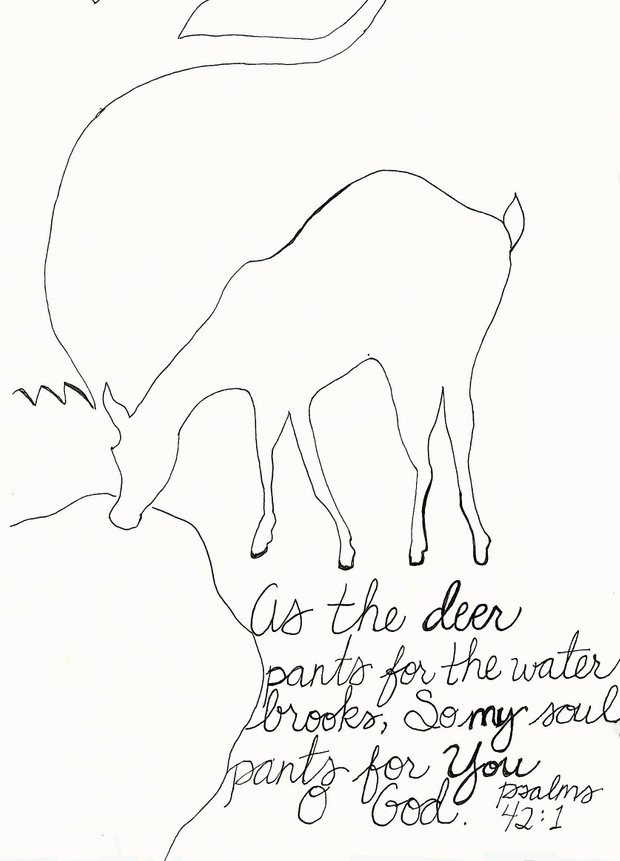 As the deer
pants for the water
brooks, So my soul
pants for You
O God. psalms
42:1